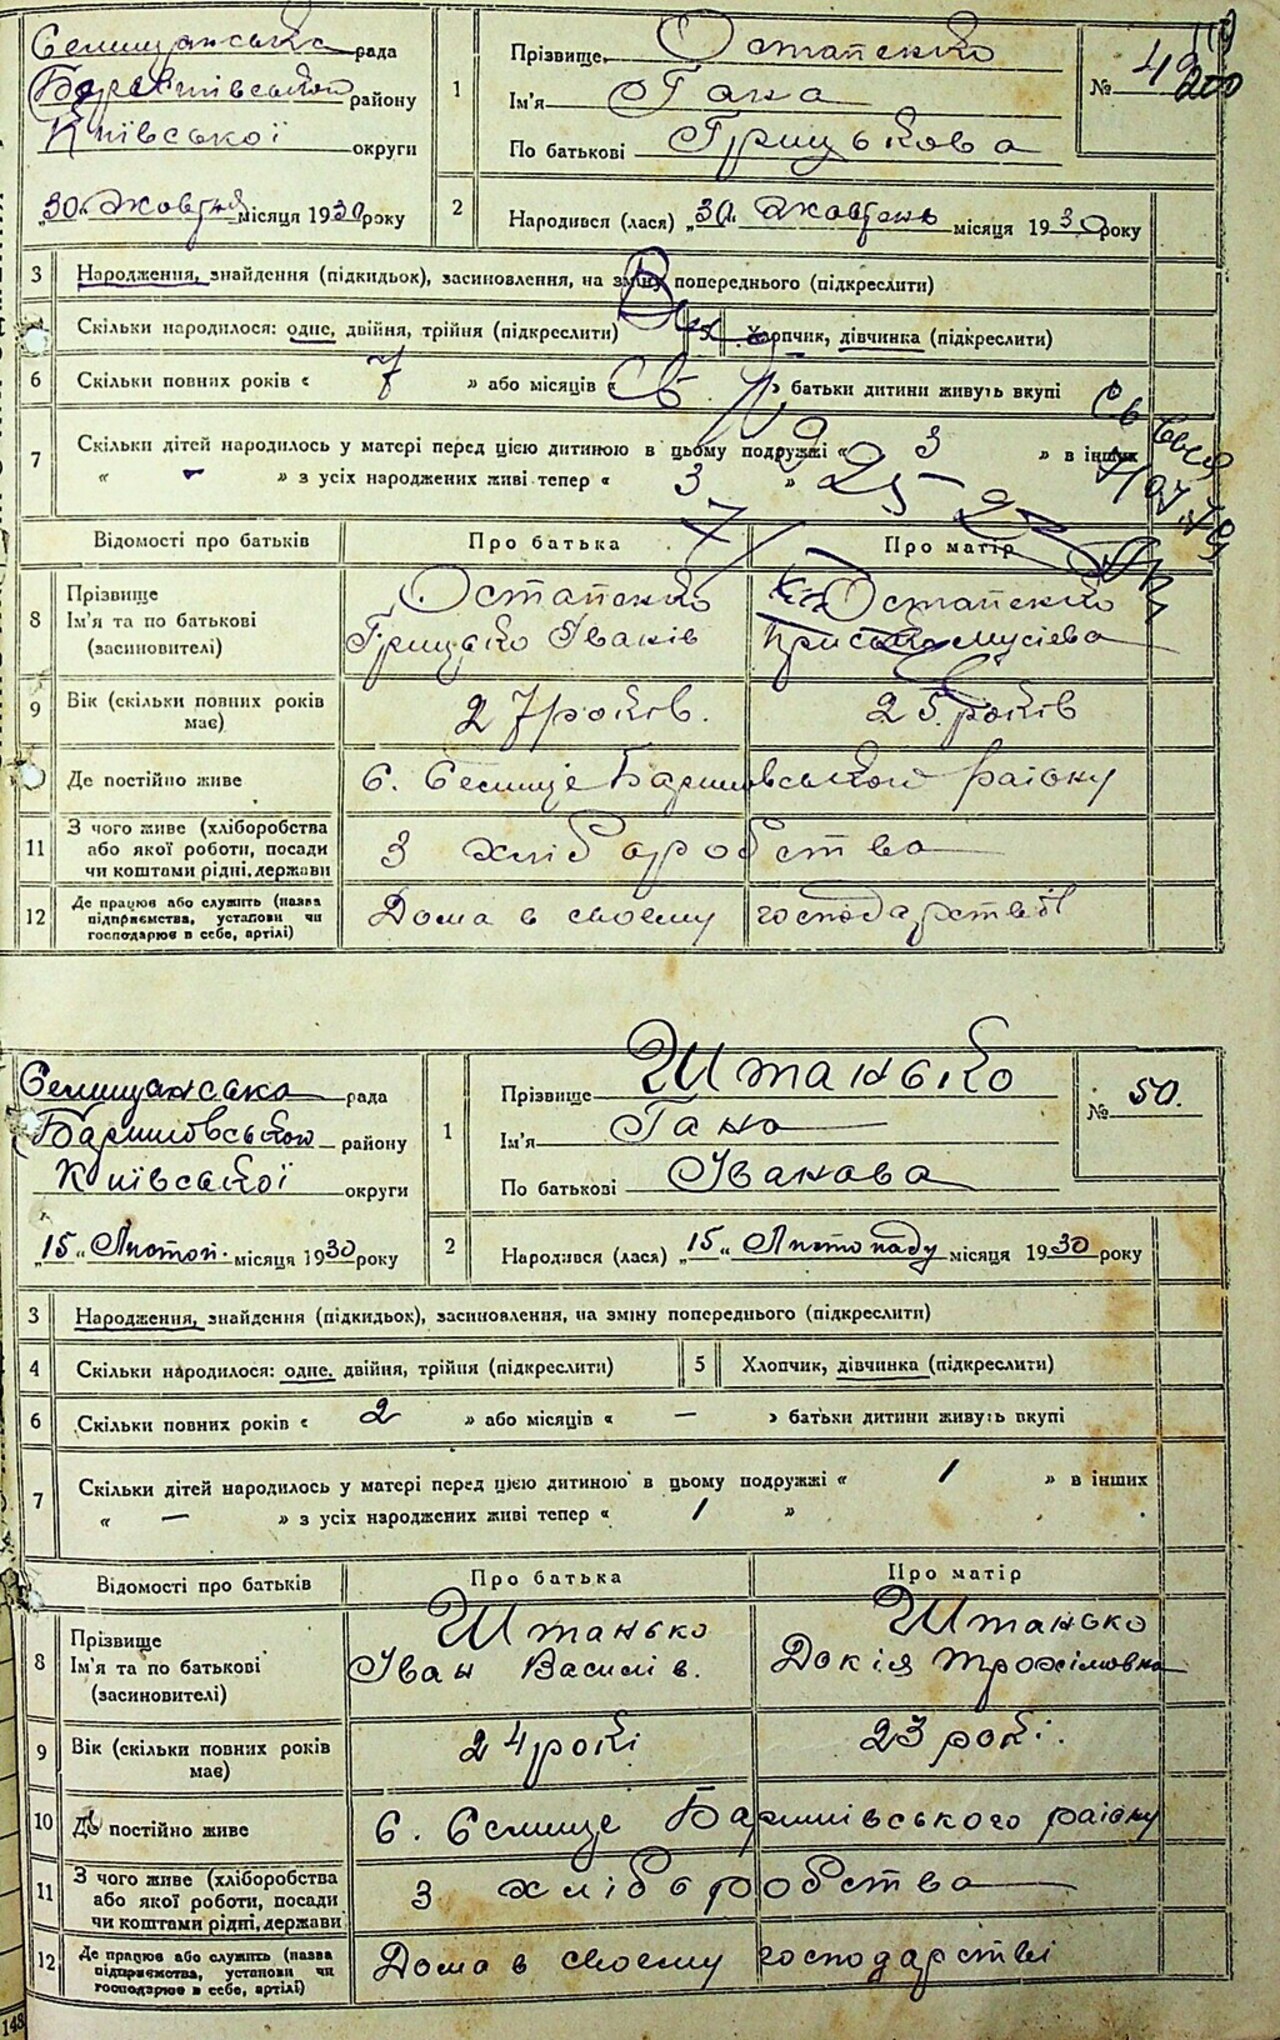 Селищанська рада
Баришівської району
Київської округи
„30“ жовтня місяця 1930 року
1 Прізвище Остапенко
Ім'я Гана
По батькові Грицькова
№ 49
200
2 Народився (лася) „30“ жовтень місяця 1930 року
3 Народження, знайдення (підкидьок), засиновлення, на зміну попереднього (підкреслити)
Скільки народилося: одне, двійня, трійня (підкреслити) 5 Хлопчик, дівчинка (підкреслити)
6 Скільки повних років « 7 » або місяців « » батьки дитини живуть вкупі
7 Скільки дітей народилось у матері перед цією дитиною в цьому подружжі « 3 » в інших
« - » з усіх народжених живі тепер « 3 »
25
Відомості про батьків Про батька Про матір
8 Прізвище
Ім'я та по батькові
(засиновителі)
Остапенко
Грицько Іванів
Остапенко
Приська Мусієва
9 Вік (скільки повних років має) 27 років. 25 років
Де постійно живе С. Селище Баришовської району
11 З чого живе (хліборобства
або якої роботи, посади
чи коштами рідні, держави
З хліборобства
12 Де працює або служить (назва
підприємства, установи чи
господарює в себе, артілі)
Дома в своєму господарстві
Селищанська рада
Баришовської району
Київської округи
„15“ Листоп. місяця 1930 року
1 Прізвище Штанько
Ім'я Гана
По батькові Іванова
№ 50.
2 Народився (лася) „15“ Листопаду місяця 1930 року
3 Народження, знайдення (підкидьок), засиновлення, на зміну попереднього (підкреслити)
4 Скільки народилося: одне, двійня, трійня (підкреслити) 5 Хлопчик, дівчинка (підкреслити)
6 Скільки повних років « 2 » або місяців « — » батьки дитини живуть вкупі
7 Скільки дітей народилось у матері перед цією дитиною в цьому подружжі « 1 » в інших
« — » з усіх народжених живі тепер « 1 »
Відомості про батьків Про батька Про матір
8 Прізвище
Ім'я та по батькові
(засиновителі)
Штанько
Іван Василів.
Штанько
Докія Трохимовна
9 Вік (скільки повних років має) 24 рокі 23 рокі.
10 Де постійно живе С. Селище Баришівського району
11 З чого живе (хліборобства
або якої роботи, посади
чи коштами рідні, держави
З хліборобства
12 Де працює або служить (назва
підприємства, установи чи
господарює в себе, артілі)
Дома в своєму господарстві
148